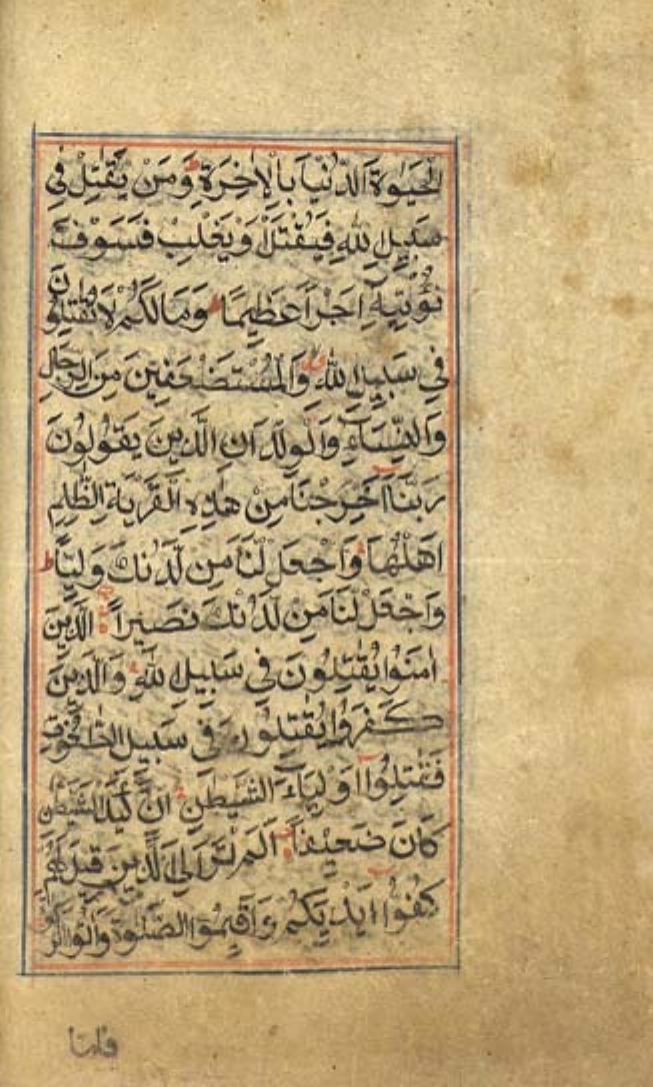 الْحَيٰوةَ الدُّنْيَا بِالْاٰخِرَةِ ؕ وَمَنْ يُّقَاتِلْ فِي
سَبِيلِ اللهِ فَيُقْتَلْ اَوْ يَغْلِبْ فَسَوْفَ
نُؤْتِيهِ اَجْرًا عَظِيمًا وَمَا لَكُمْ لَا تُقَاتِلُونَ
فِي سَبِيلِ اللهِ وَالْمُسْتَضْعَفِينَ مِنَ الرِّجَالِ
وَالنِّسَآءِ وَالْوِلْدَانِ الَّذِينَ يَقُولُونَ
رَبَّنَا اَخْرِجْنَا مِنْ هٰذِهِ الْقَرْيَةِ الظَّالِمِ
اَهْلُهَا وَاجْعَلْ لَّنَا مِنْ لَّدُنْكَ وَلِيًّا ط
وَاجْعَلْ لَّنَا مِنْ لَّدُنْكَ نَصِيرًا الَّذِينَ
اٰمَنُوا يُقَاتِلُونَ فِي سَبِيلِ اللهِ وَالَّذِينَ
كَفَرُوا يُقَاتِلُونَ فِي سَبِيلِ الطَّاغُوتِ
فَقَاتِلُوا اَوْلِيَآءَ الشَّيْطٰنِ اِنَّ كَيْدَ الشَّيْطٰنِ
كَانَ ضَعِيفًا اَلَمْ تَرَ اِلَى الَّذِينَ قِيلَ لَهُمْ
كُفُّوا اَيْدِيَكُمْ وَاَقِيمُوا الصَّلٰوةَ وَاٰتُوا الزَّكٰوةَ
فلما